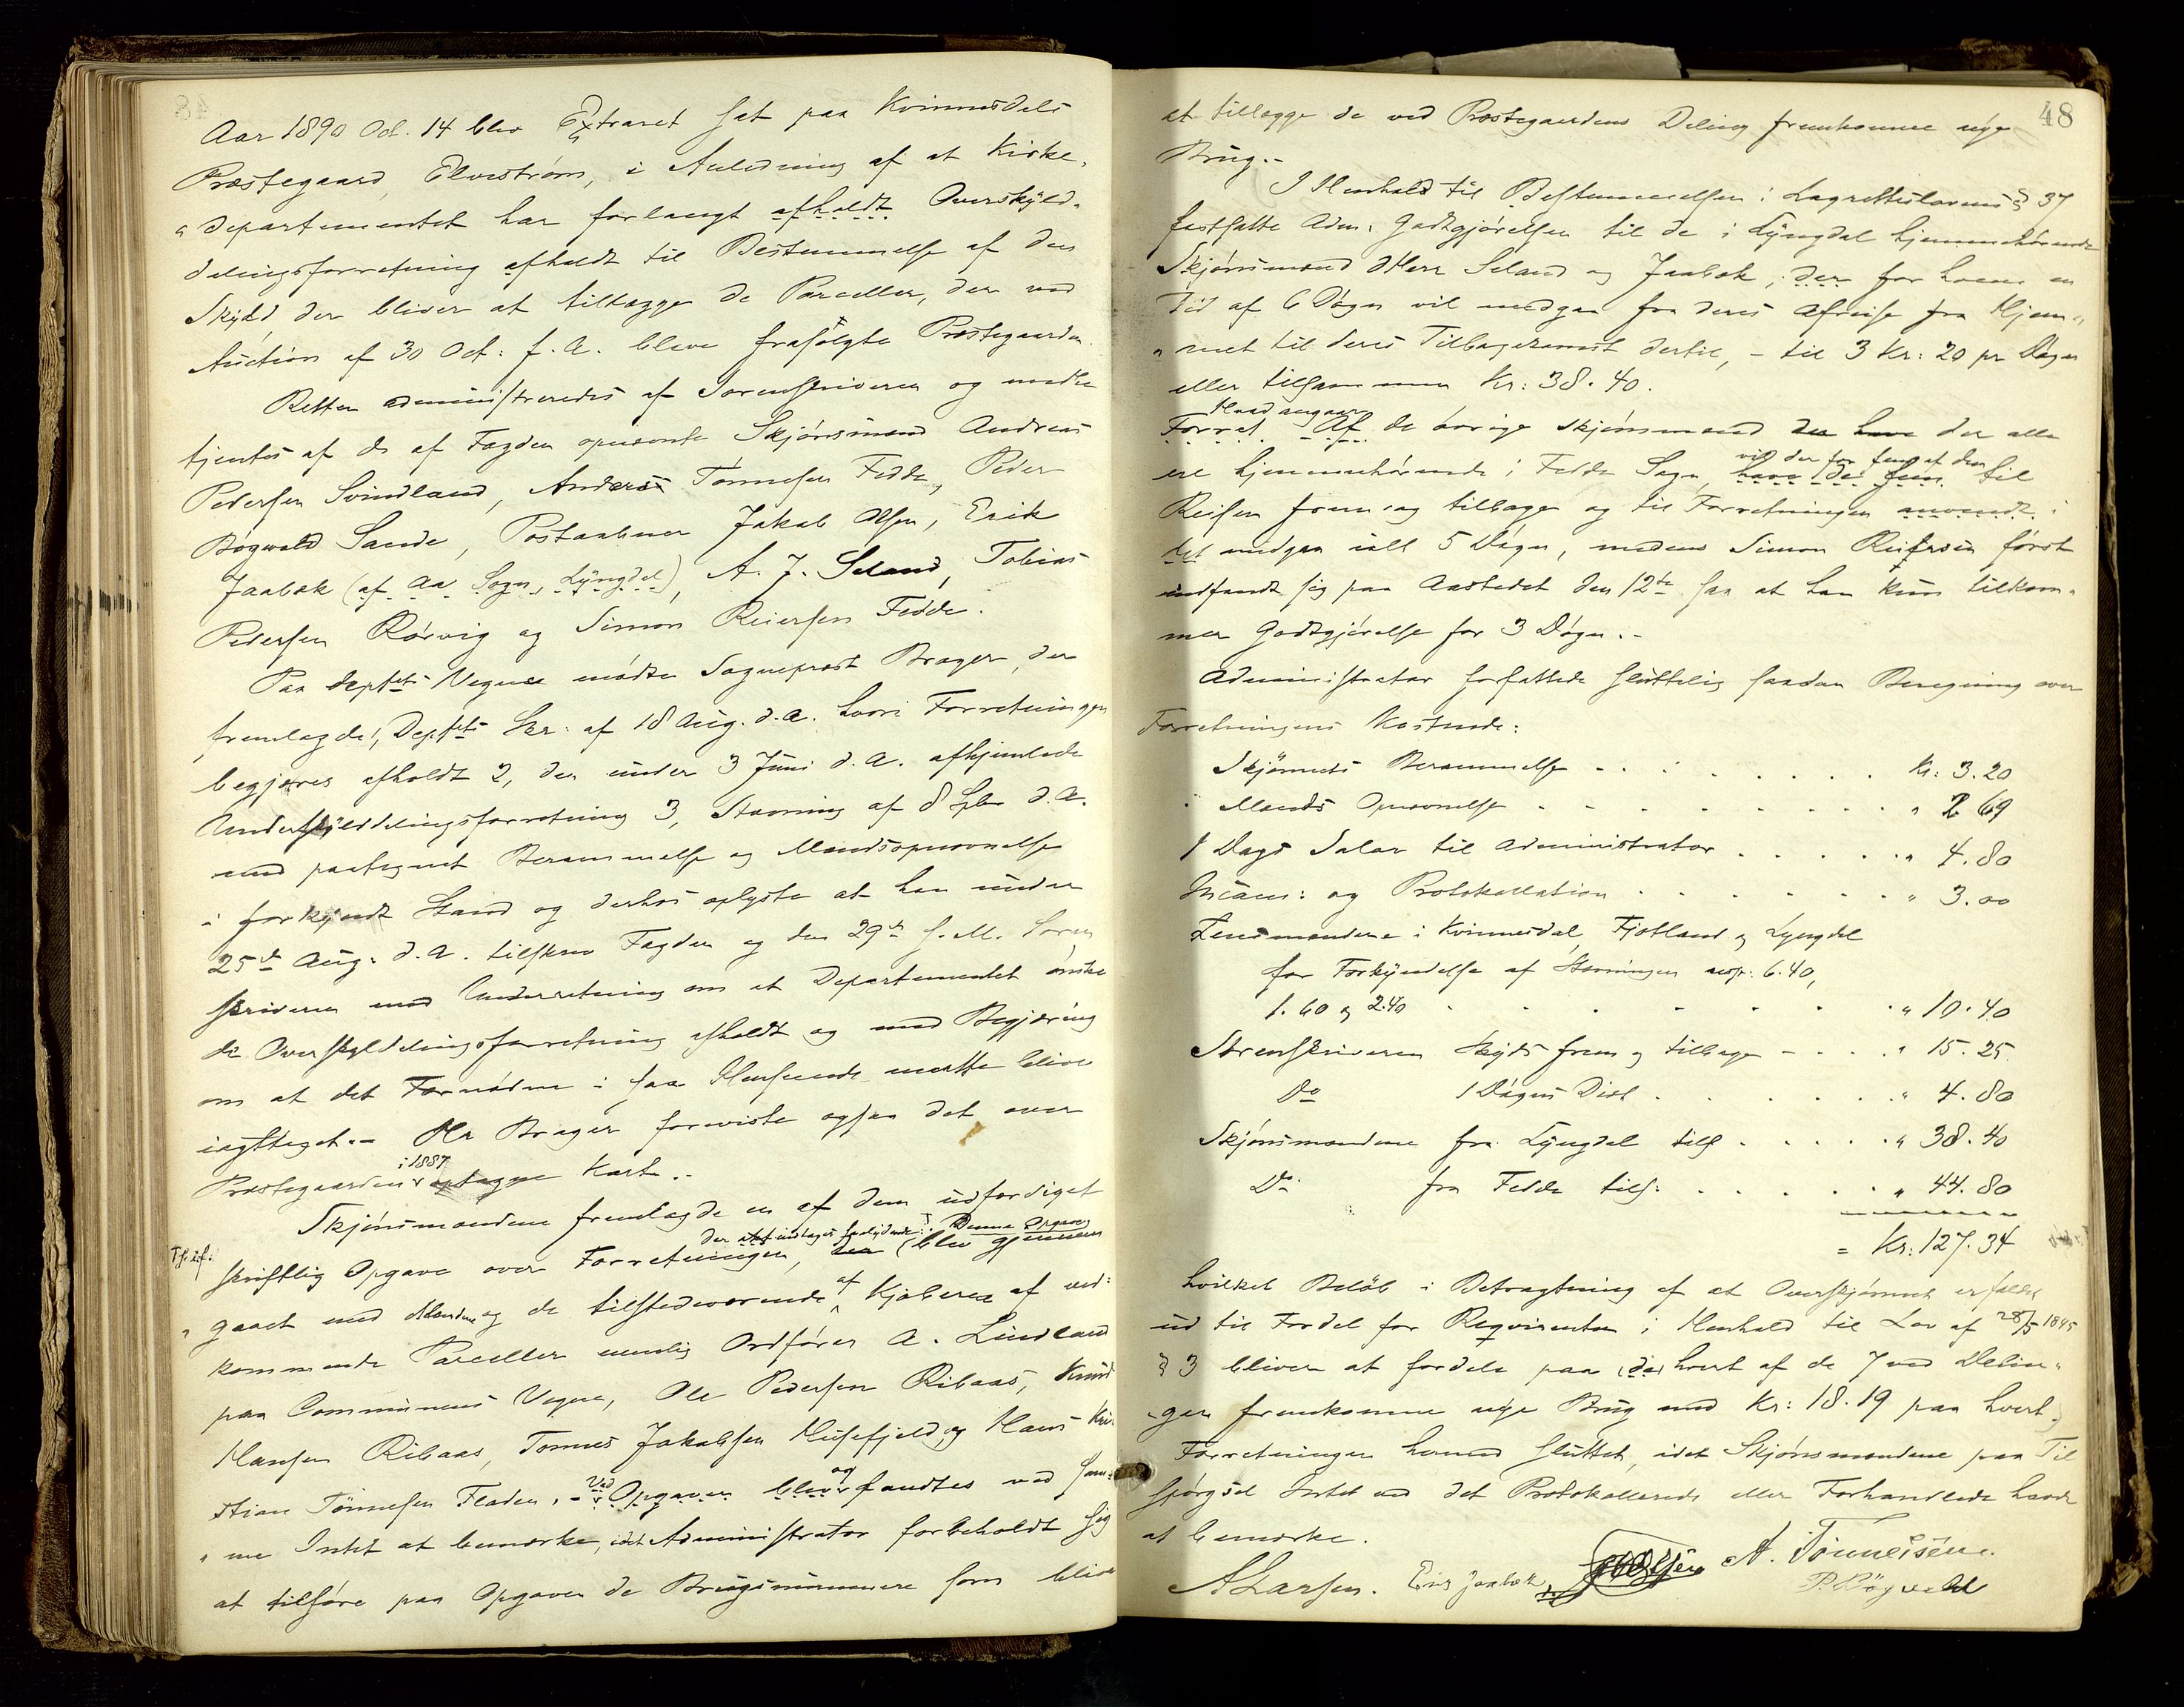 Aar 1890 Oct. 14 blev Extraret sat paa Kvinnesdals
Præstegaard, Elvestrøm, i Anledning af at Kirke-
departementet har forlangt afholdt Overskyld-
delingsforretning afholdt til Bestemmelse af den
Skyld der bliver at tillægge de Parceller, der ved
Auction af 30 Oct: f. A. bleve frasolgte Præstegaarden.
Retten administreredes af Sorenskriveren og med-
tjentes af de af Fogden opnævnte Skjønsmænd Andreas
Pedersen Svindland, Anders Tønnesen Fedde, Peder
Bøgwald Sande, Postaabner Jakob Olsen, Erik
Jaabæk (af Aa Sogn, Lyngdal), A. J. Seland, Tobias
Pedersen Rørvig og Simon Reiersen Fedde.
Paa Deptets Vegne mødte Sogneprest Brager, der
fremlagde 1, Deptets Skr: af 18 Aug. d. A. hvori Forretningen
begjæres afholdt 2, den under 3 Juni d. A. afhjemlede
Underskylddelingsforretning 3, Stævning af 8 Sptbr d. A.
med paategnet Berammelse og Mandsopnævnelse
i forkyndt Stand og derhos oplyste at han under
25de Aug. d. A. tilskrev Fogden og den 29de s. M. Soren
skriveren med Underretning om at Departementet ønske
de Overskylddelingsforretning afholdt og med Begjæring
om at det Fornødne i saa Henseende maatte blive
iagttaget. - Hr Brager foreviste ogsaa det over
Præstegaarden i 1887 optagne Kart. -
Skjønsmændene fremlagde en af dem udfærdiget
der indtages saalydende: Denne Opgave
Th. if. skriftlig Opgave over Forretningen, blev gjennem
gaaet med Mændene og de tilstedeværende af Kjøberne af ved-
kommende Parceller nemlig Ordfører A. Lindland
paa Communens Vegne, Ole Pedersen Ribaas, Knud
Hansen Ribaas, Tønnes Jakobsen Husefjeld, og Hans Kri-
stian Tønnesen Fladen. - Ved Opgaven blev og fandtes ved sam-
me Intet at bemærke, idet Administrator forbeholdt sig
at tilføre paa Opgaven de Brugsnummere som blive
48
at tillægge de ved Præstegaardens Deling fremkomne nye
Brug. -
I Henhold til Bestemmelsen i Lagrettelovens § 37
fastsatte Adm. Godtgjørelsen til de i Lyngdal hjemmehørende
Skjønsmænd DHerr Seland og Jaabæk, der for hvem en
Tid af 6 Døgn vil medgaa fra deres Afreise fra Hjem-
met til deres Tilbagekomst dertil, - til 3 Kr: 20 pr Døgn
eller tilsammen Kr: 38.40.
Hvad angaar
Forret Af de øvrige Skjønsmænd der have der alle
vil der for fem af dem
ere hjemmehørende i Fedde Sogn, have de fem til
Reisen frem og tilbage og til Forretningen anvendt i
det medgaa ialt 5 Døgn, medens Simon Reiersen først
indfandt sig paa Aastedet den 12te saa at han kun tilkom-
mer Godtgjørelse for 3 Døgn. -
Administrator forfattede sluttelig saadan Beregning over
Forretningens Kostende:
Skjønnets Berammelse . . . . Kr: 3.20
Mænds Opnævnelse . . . . " 2 69
1 Dags Salar til Administrator . . . . " 4.80
Incam: og Protokollation . . . . " 3.00
Lensmændene i Kvinnesdal, Fjotland og Lyngdal
for Forkyndelse af Stævningen resp: 6.40,
1.60 og 2.40 . . . . " 10.40
Sorenskriveren Skyds frem og tilbage . . . . " 15.25
Do 1 Døgns Diæt . . . . " 4.80
Skjønsmændene fra Lyngdal tils . . . . " 38.40
Do fra Fedde tils: . . . . " 44.80
= Kr: 127.34
hvilket Beløb i Betragtning af at Overskjønnet er faldet
ud til Fordel for Reqvirenten i Henhold til Lov af 28/5 1845
§ 3 bliver at fordele paa (de) hvert af de 7 ved Delin-
gen fremkomne nye Brug med Kr: 18.19 paa hvert.
Forretningen hermed sluttet, idet Skjønsmændene paa Til
spørgsel Intet ved det Protokollerede eller Forhandlede havde
at bemærke.
A Larsen. Erik Jaabæk A. Tønnesen.
P. Bøgwald